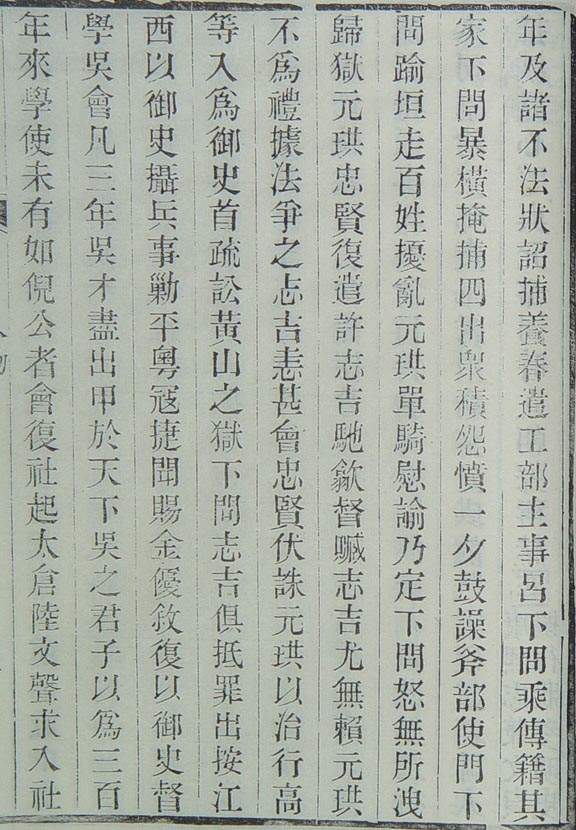 年及諸不法狀詔捕養春遣工部主事呂下問乘傳籍其
家下問暴橫掩捕四出衆積怨憤一夕鼓譟斧部使門下
問踰垣走百姓擾亂元珙單騎慰諭乃定下問怒無所洩
歸獄元珙忠賢復遣許志吉馳歙督贓志吉尤無賴元珙
不爲禮據法爭之志吉恚甚會忠賢伏誅元珙以治行高
等入爲御史首疏訟黃山之獄下問志吉俱抵罪出按江
西以御史攝兵事勦平粵寇捷聞賜金優敘復以御史督
學吳會凡三年吳才盡出甲於天下吳之君子以爲三百
年來學使未有如倪公者會復社起太倉陸文聲求入社